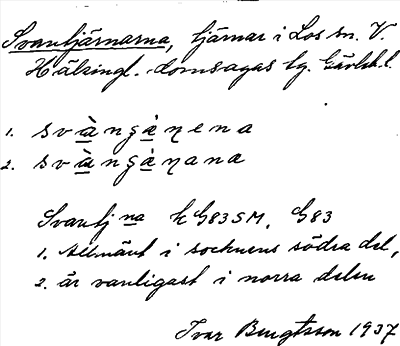 Svantjärnarna, tjärnar i Los sn. V.
Hälsingl. domsagas tg. Gävleb.l.
1. svàngàŋena
2. svàngàŋana
Svantj na k G83SM, G83
1. Allmänt i socknens södra del,
2. är vanligast i norra delen
Ivar Bengtsson 1937